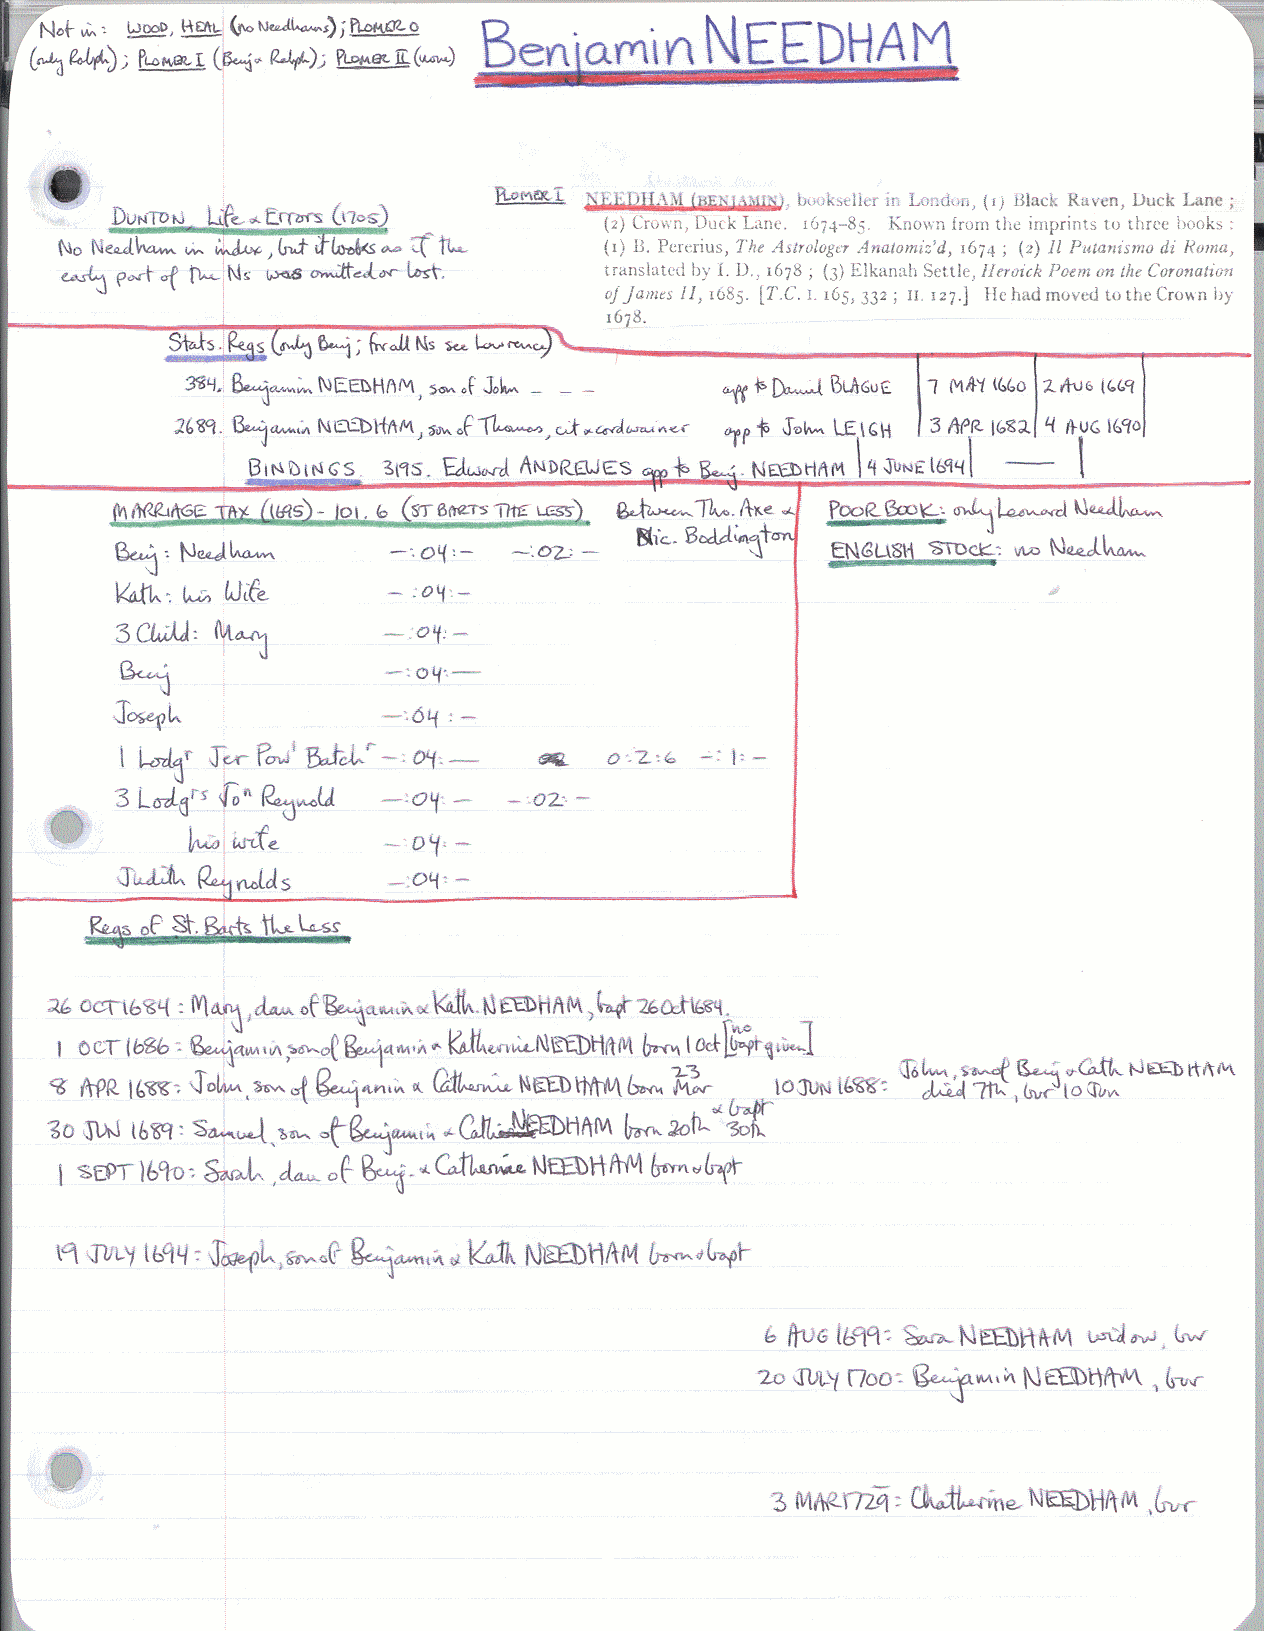 Not in: WOOD, HEAL (no Needhams); PLOMER O
(only Ralph); PLOMER I (Benj & Ralph); PLOMER II (none)
Benjamin NEEDHAM
DUNTON, Life & Errors (1705)
No Needham in index, but it looks as if the
early part of the Ns was omitted or lost.
PLOMER I
NEEDHAM (BENJAMIN), bookseller in London, (1) Black Raven, Duck Lane ;
(2) Crown, Duck Lane. 1674–85. Known from the imprints to three books :
(1) B. Pererius, The Astrologer Anatomiz'd, 1674 ; (2) Il Putanismo di Roma,
translated by I. D., 1678 ; (3) Elkanah Settle, Heroick Poem on the Coronation
of James II, 1685. [T.C. I. 165, 332 ; II. 127.] He had moved to the Crown by
1678.
Stats. Regs (only Benj; for all Ns see Lawrence)
384. Benjamin NEEDHAM, son of John – – – app to Daniel BLAGUE 7 MAY 1660 2 AUG 1669
2689. Benjamin NEEDHAM, son of Thomas, cit & cordwainer app to John LEIGH 3 APR 1682 4 AUG 1690
BINDINGS. 3195. Edward ANDREWES app to Benj. NEEDHAM 4 JUNE 1694 —
MARRIAGE TAX (1695) - 101. 6 (ST BARTS THE LESS) Between Tho. Axe &
Nic. Boddington
Benj: Needham –:04:– –:02:–
Kath: his Wife –:04:–
3 Child: Mary –:04:–
Benj –:04:–
Joseph –:04:–
1 Lodgr Jer Powl Batchr –:04:– 0:2:6 –:1:–
3 Lodgrs Jon Reynold –:04:– –:02:–
his wife –:04:–
Judith Reynolds –:04:–
POOR BOOK: only Leonard Needham
ENGLISH STOCK: no Needham
Regs of St. Barts the Less
26 OCT 1684: Mary, dau of Benjamin & Kath. NEEDHAM, bapt 26 Oct 1684.
1 OCT 1686: Benjamin, son of Benjamin & Katherine NEEDHAM born 1 Oct [no bapt given]
8 APR 1688: John, son of Benjamin & Catherine NEEDHAM born 23 Mar
10 JUN 1688: John, son of Benj & Cath NEEDHAM
died 7th, bur 10 Jun
30 JUN 1689: Samuel, son of Benjamin & Cath NEEDHAM born 20th & bapt 30th
1 SEPT 1690: Sarah, dau of Benj. & Catherine NEEDHAM born & bapt
19 JULY 1694: Joseph, son of Benjamin & Kath NEEDHAM born & bapt
6 AUG 1699: Sara NEEDHAM widow, bur
20 JULY 1700: Benjamin NEEDHAM, bur
3 MAR 1729: Chatherine NEEDHAM, bur